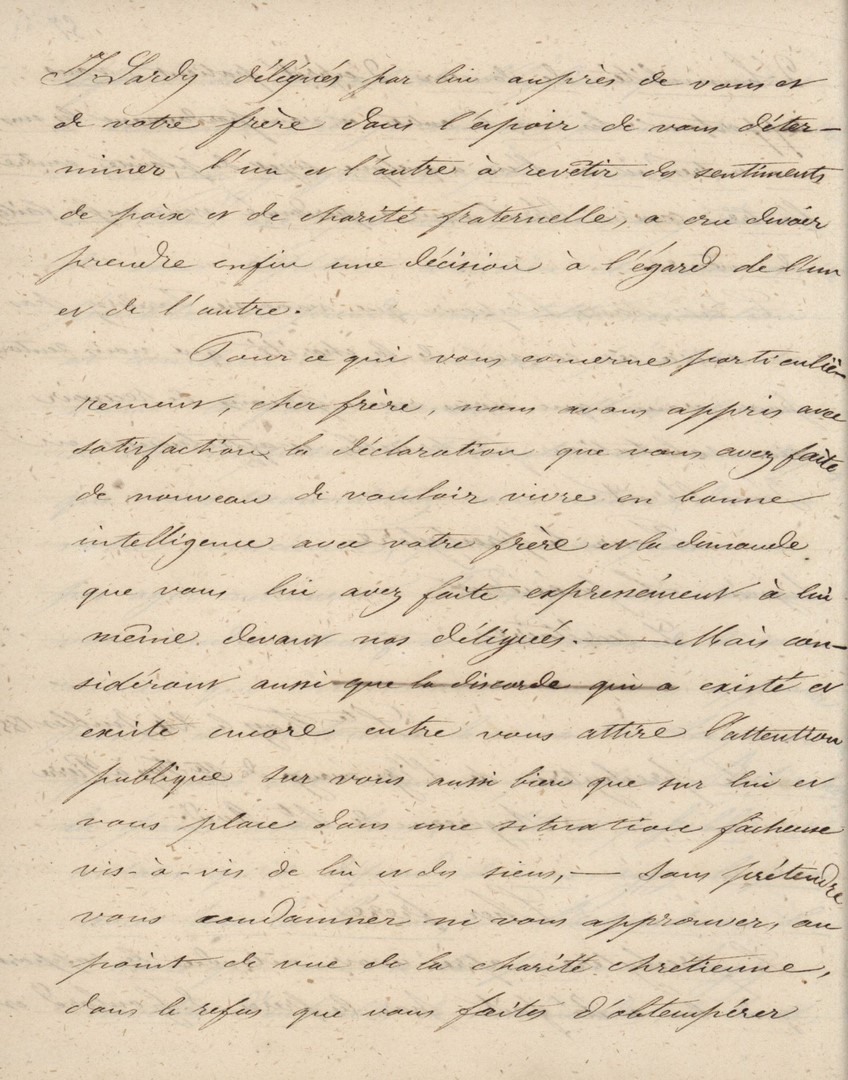 F. Lardy délégués par lui auprès de vous et
de votre frère dans l'espoir de vous déter-
miner, l'un et l'autre à revêtir des sentiments
de paix et de charité fraternelle, a cru devoir
prendre enfin une décision à l'égard de l'un
et de l'autre.
Pour ce qui vous concerne particuliè-
rement, cher frère, nous avons appris avec
satisfaction la déclaration que vous avez faite
de nouveau de vouloir vivre en bonne
intelligence avec votre frère et la demande
que vous lui avez faite expressément à lui-
même devant nos délégués. — Mais con-
sidérant aussi que la discorde qui a existé et
existe encore entre vous attire l'attention
publique sur vous aussi bien que sur lui et
vous place dans une situation fâcheuse
vis-à-vis de lui et des siens, — Sans prétendre
vous condamner ni vous approuver, au
point de vue de la charité chrétienne,
dans le refus que vous faites d'obtempérer